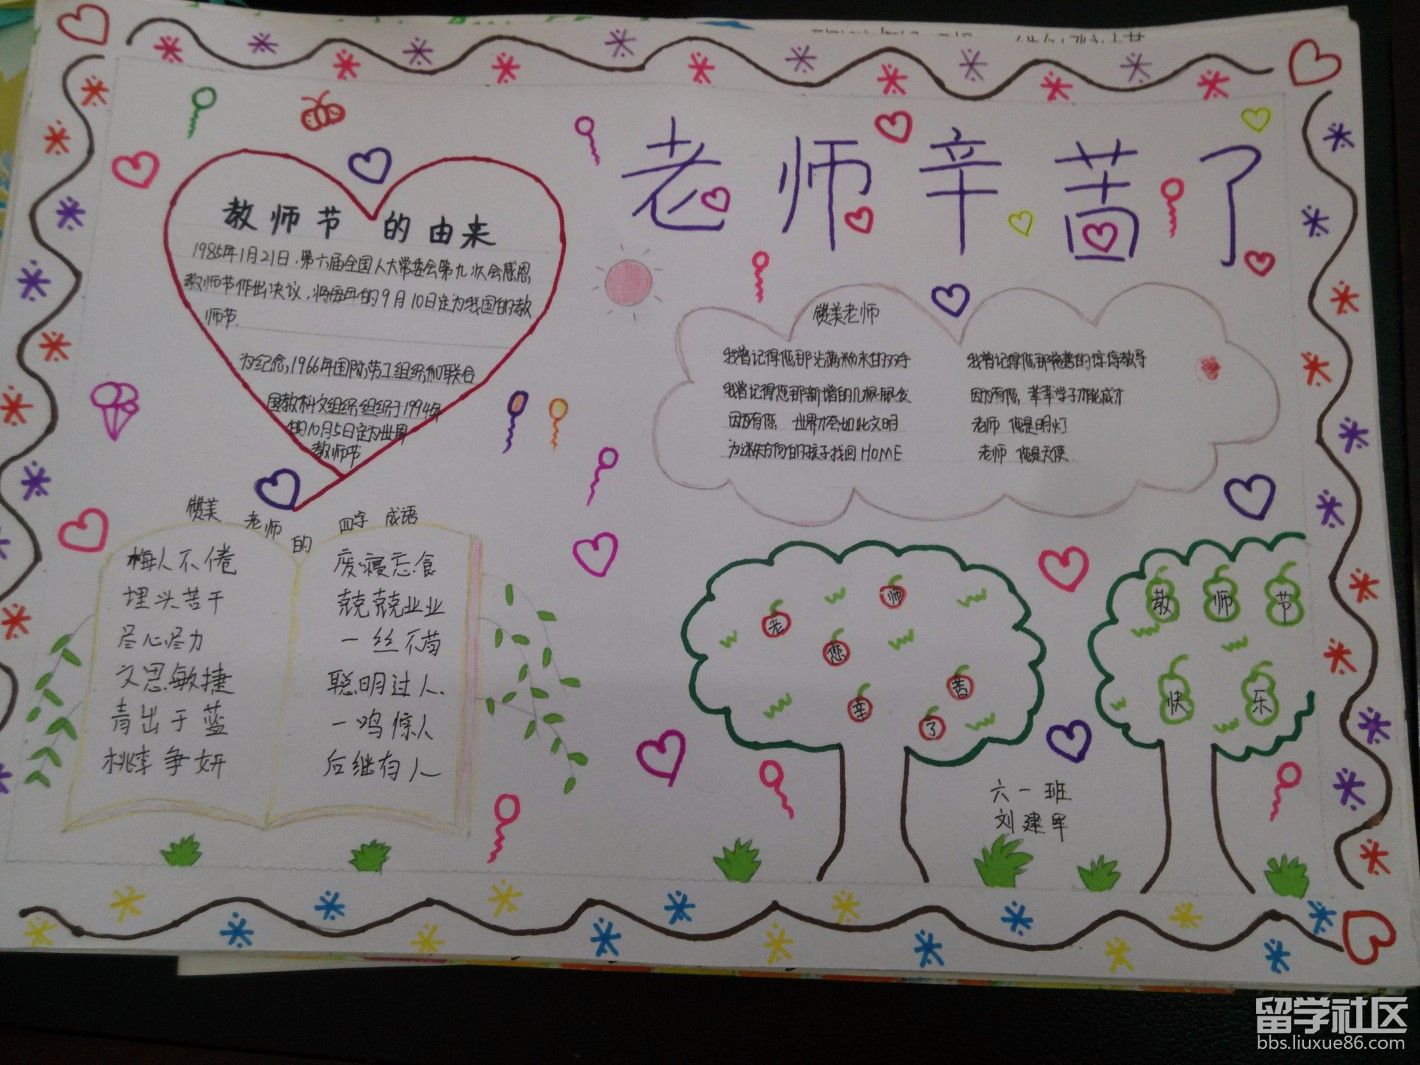 老师辛苦了
教师节的由来
1985年1月21日,第六届全国人大常委会第九次会感恩
教师节作出决议,将每年的9月10日定为我国的教
师节.
为纪念,1966年国际劳工组织和联合
国教科文组织组织于1994年
的10月5日定为世界
教师节
赞美老师
我曾记得您那光满粉末的双手
我曾记得您那新增的几根银发
因为有您 世界才会如此文明
为迷失方向的孩子找回HOME
我曾记得您那慈善的谆谆教导
因为有您,莘莘学子才能成才
老师 俺是明灯
老师 俺是天使
赞美老师的四字成语
梅人不倦
埋头苦干
尽心尽力
文思敏捷
青出于蓝
桃李争妍
废寝忘食
兢兢业业
一丝不苟
聪明过人.
一鸣惊人
后继有人
老师您辛苦了
教师节
快乐
六一班
刘建军
留学社区
bbs.liuxue86.com